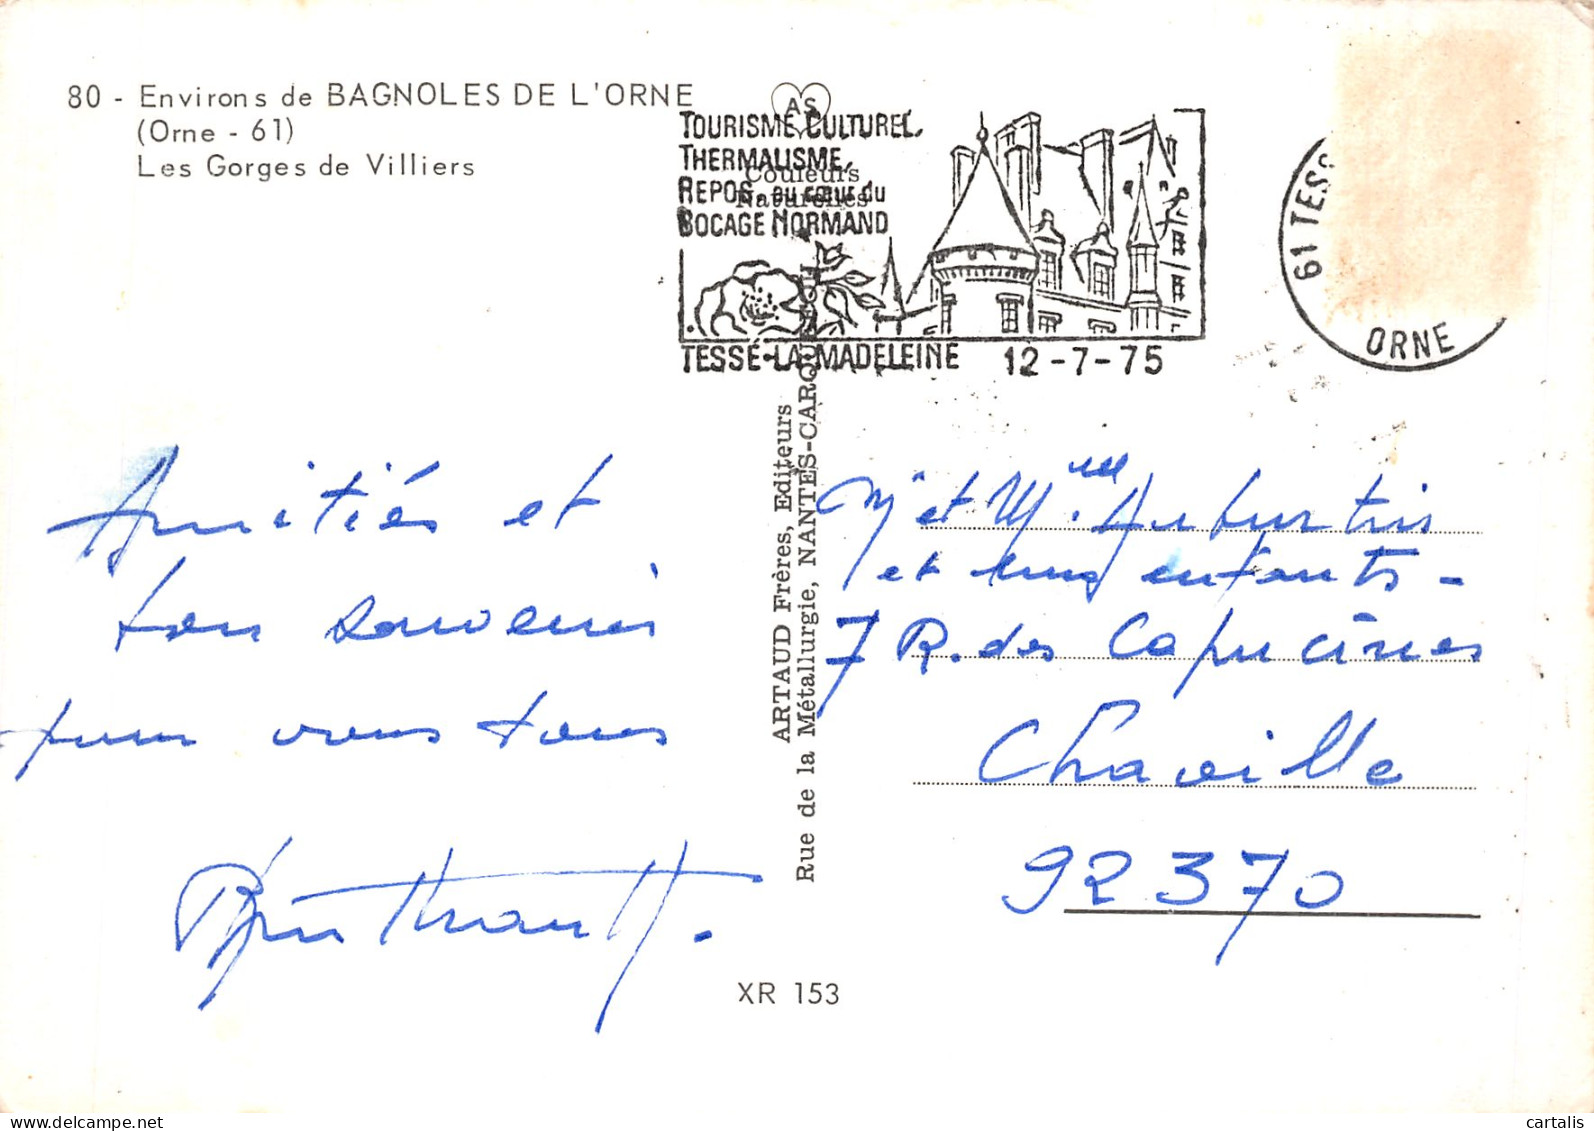 80 - Environs de BAGNOLES DE L'ORNE
(Orne - 61)
Les Gorges de Villiers
AS
Couleurs
Naturelles
TOURISME CULTUREL,
THERMALISME,
REPOS AU CŒUR DU
BOCAGE NORMAND
TESSÉ-LA-MADELEINE 12-7-75
61 TESS
ORNE
Amitiés et
bon souvenir
pour vous tous
ARTAUD Frères, Editeurs
Rue de la Métallurgie, NANTES-CARQUEFOU
Mr et Mme
et leurs enfants -
7 R. des Capucines
Chaville
92370
XR 153
cartalis